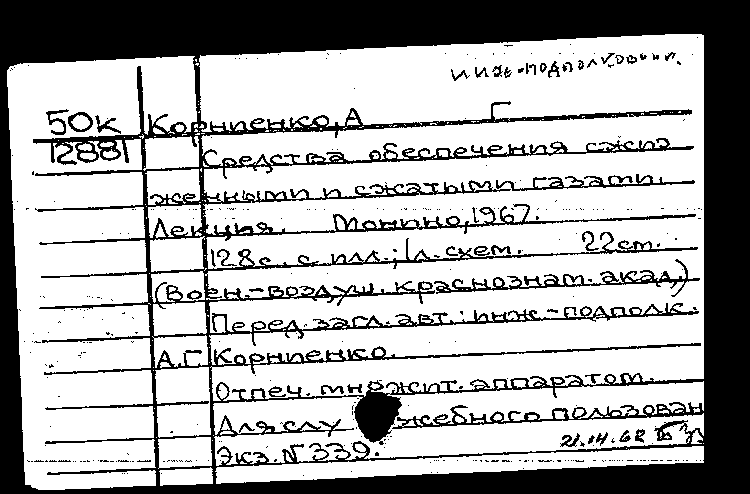 инж-подполковник.
50к Корниенко, А Г
12881 Средства обеспечения сжи-
женными и сжатыми газами.
Лекция. Монино, 1967.
128с. с илл.; 1л. схем. 22см.
(Воен.-воздуш. краснознам. акад.)
Перед загл. авт.: инж.-подполк.
А.Г. Корниенко.
Отпеч. множит. аппаратом.
Для служебного пользован
Экз. № 339.